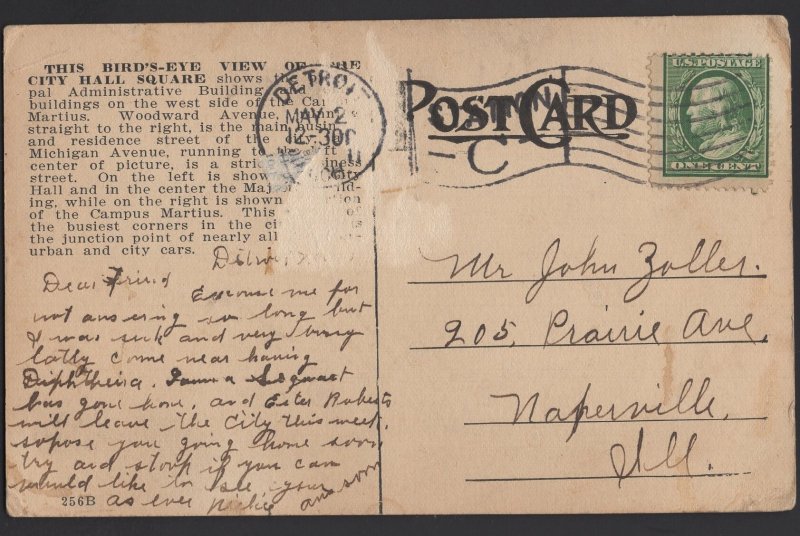 THIS BIRD'S-EYE VIEW OF THE
CITY HALL SQUARE shows the
pal Administrative Building and
buildings on the west side of the Ca
Martius. Woodward Avenue,
straight to the right, is the main busin
and residence street of the
Michigan Avenue, running to left
center of picture, is a str iness
street. On the left is show City
Hall and in the center the Maj ld-
ing, while on the right is shown tion
of the Campus Martius. This of
the busiest corners in the ci is
the junction point of nearly all
urban and city cars.
DETROIT
MAY 2
12-30P
11
POST CARD
U.S. POSTAGE
ONE CENT
Detroit
Dear Friend
Excuse me for
not ansering so long but
I was sick and very busy
latly come near having
Diphtheira.
has gone home, and Ester Roberts
will leave the City this week,
sopose you going home soon
try and stoop if you can
would like to see you
as ever ans soon
256B
Mr John Zoller.
205, Prairie Ave,
Naperville,
Ill.